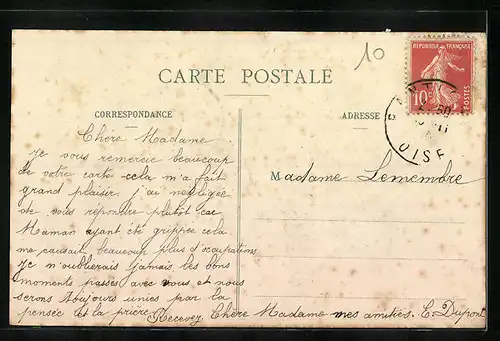 10
CARTE POSTALE
RÉPUBLIQUE FRANÇAISE
10c
POSTES
OISE
CORRESPONDANCE
ADRESSE
Chère Madame
Je vous remercie beaucoup
de votre carte cela m'a fait
grand plaisir. j'ai négligée
de vous répondre plutôt car
Maman ayant été grippée cela
me causait beaucoup plus d'occupations
Je n'oublierais jamais les bons
moments passés avec vous et nous
serons toujours unies par la
pensée et la prière
Recevez Chère Madame mes amitiés. C. Dupont
Madame Lemembre